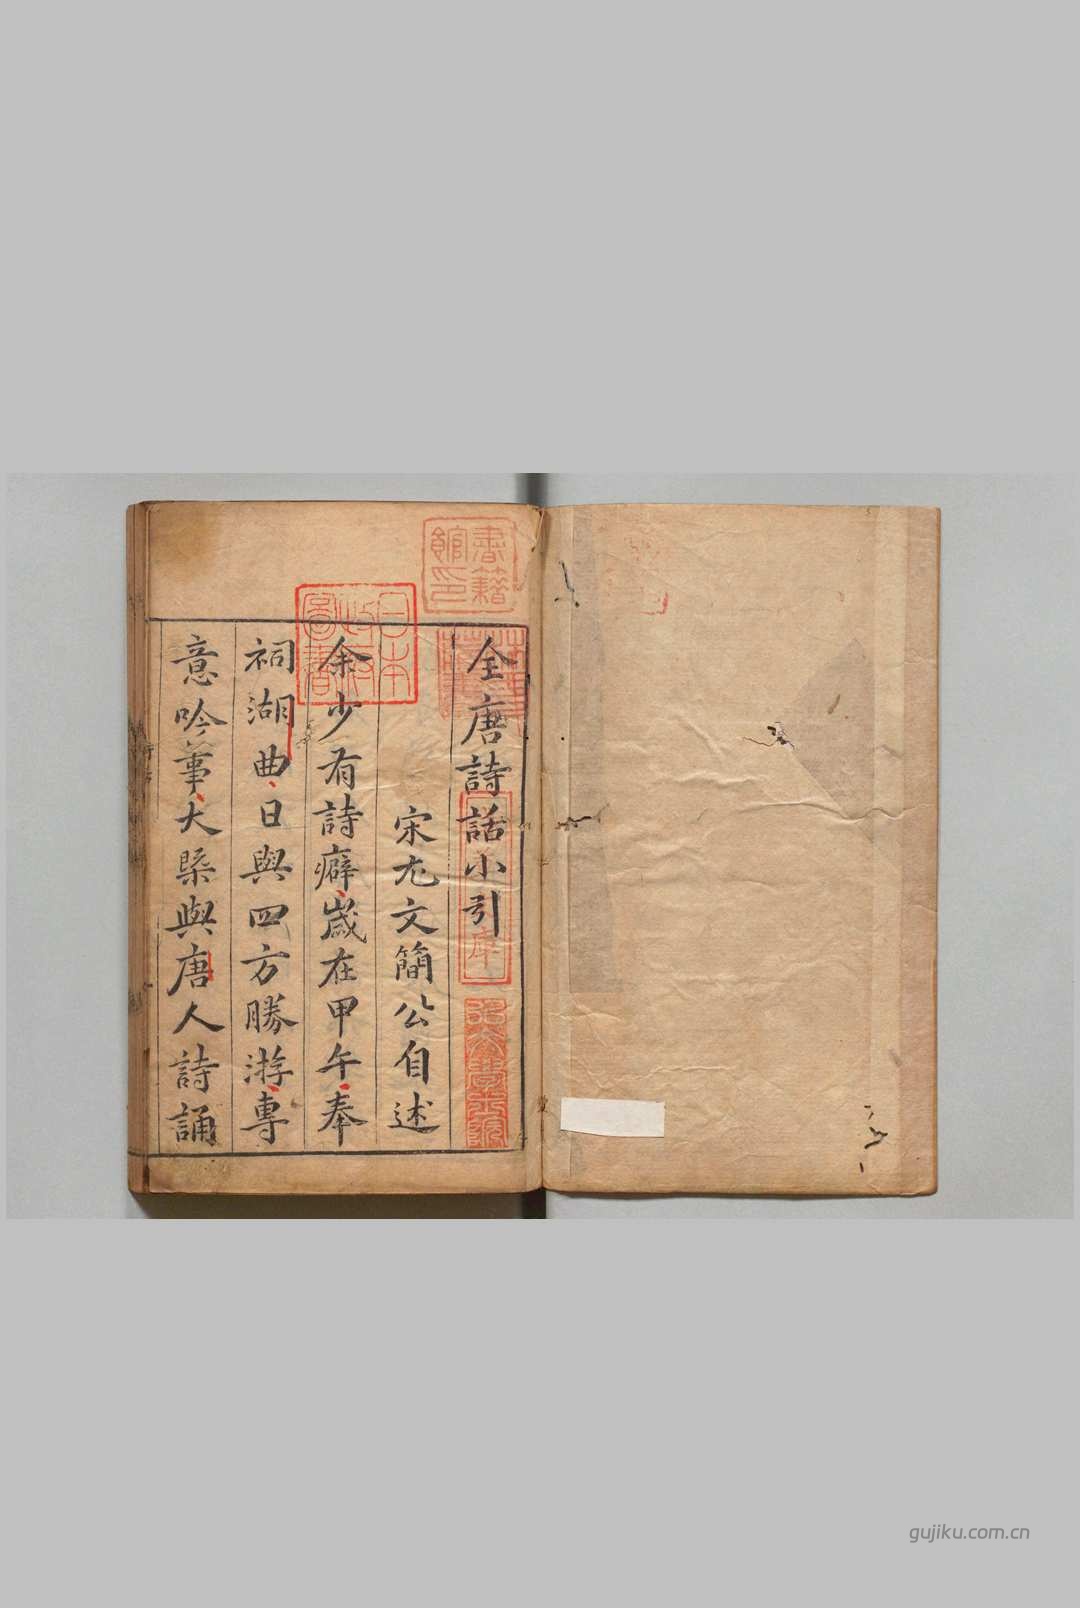 全唐詩話小引
宋尤文簡公自述
余少有詩癖歲在甲午奉
祠湖曲日與四方勝游專
意吟事大槩與唐人詩誦
書籍館印
日本政府圖書
昌平坂學問所
gujiku.com.cn